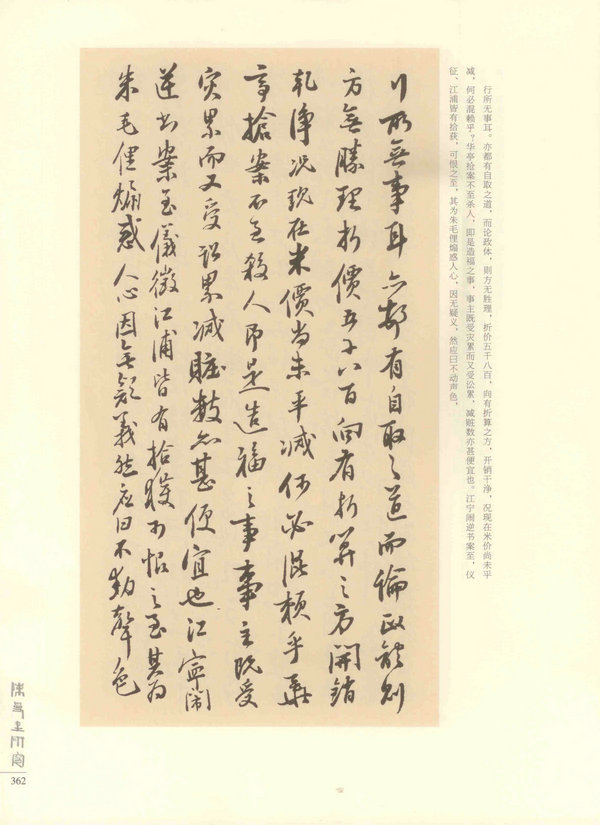 行所无事耳。亦都有自取之道，而论政体，则方无胜理，折价五千八百，向有折算之方，开销干净，况现在米价尚未平
减，何必混赖乎？华亭抢案不至杀人，即是造福之事，事主既受灾累而又受讼累，减赃数亦甚便宜也。江宁闹逆书案至，仪
征、江浦皆有拾获，可恨之至，其为朱毛俚煽惑人心，因无疑义，然应曰不动声色，
行所無事耳亦都有自取之道而論政體則
方無勝理折價五千八百向有折算之方開銷
乾淨况現在米價尚未平減何必混賴乎華
亭搶案不至殺人即是造福之事事主既受
灾累而又受訟累減贓數亦甚便宜也江寧鬧
逆书案至儀徵江浦皆有拾獲可恨之至其為
朱毛俚煽惑人心因無疑義然应曰不動聲色
362